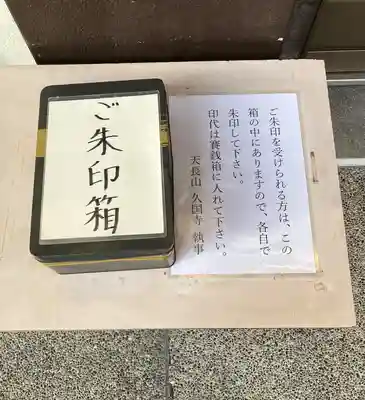 ご朱印箱
ご朱印を受けられる方は、この
箱の中にありますので、各自で
朱印して下さい。
印代は賽銭箱に入れて下さい。
天長山 久国寺 執事